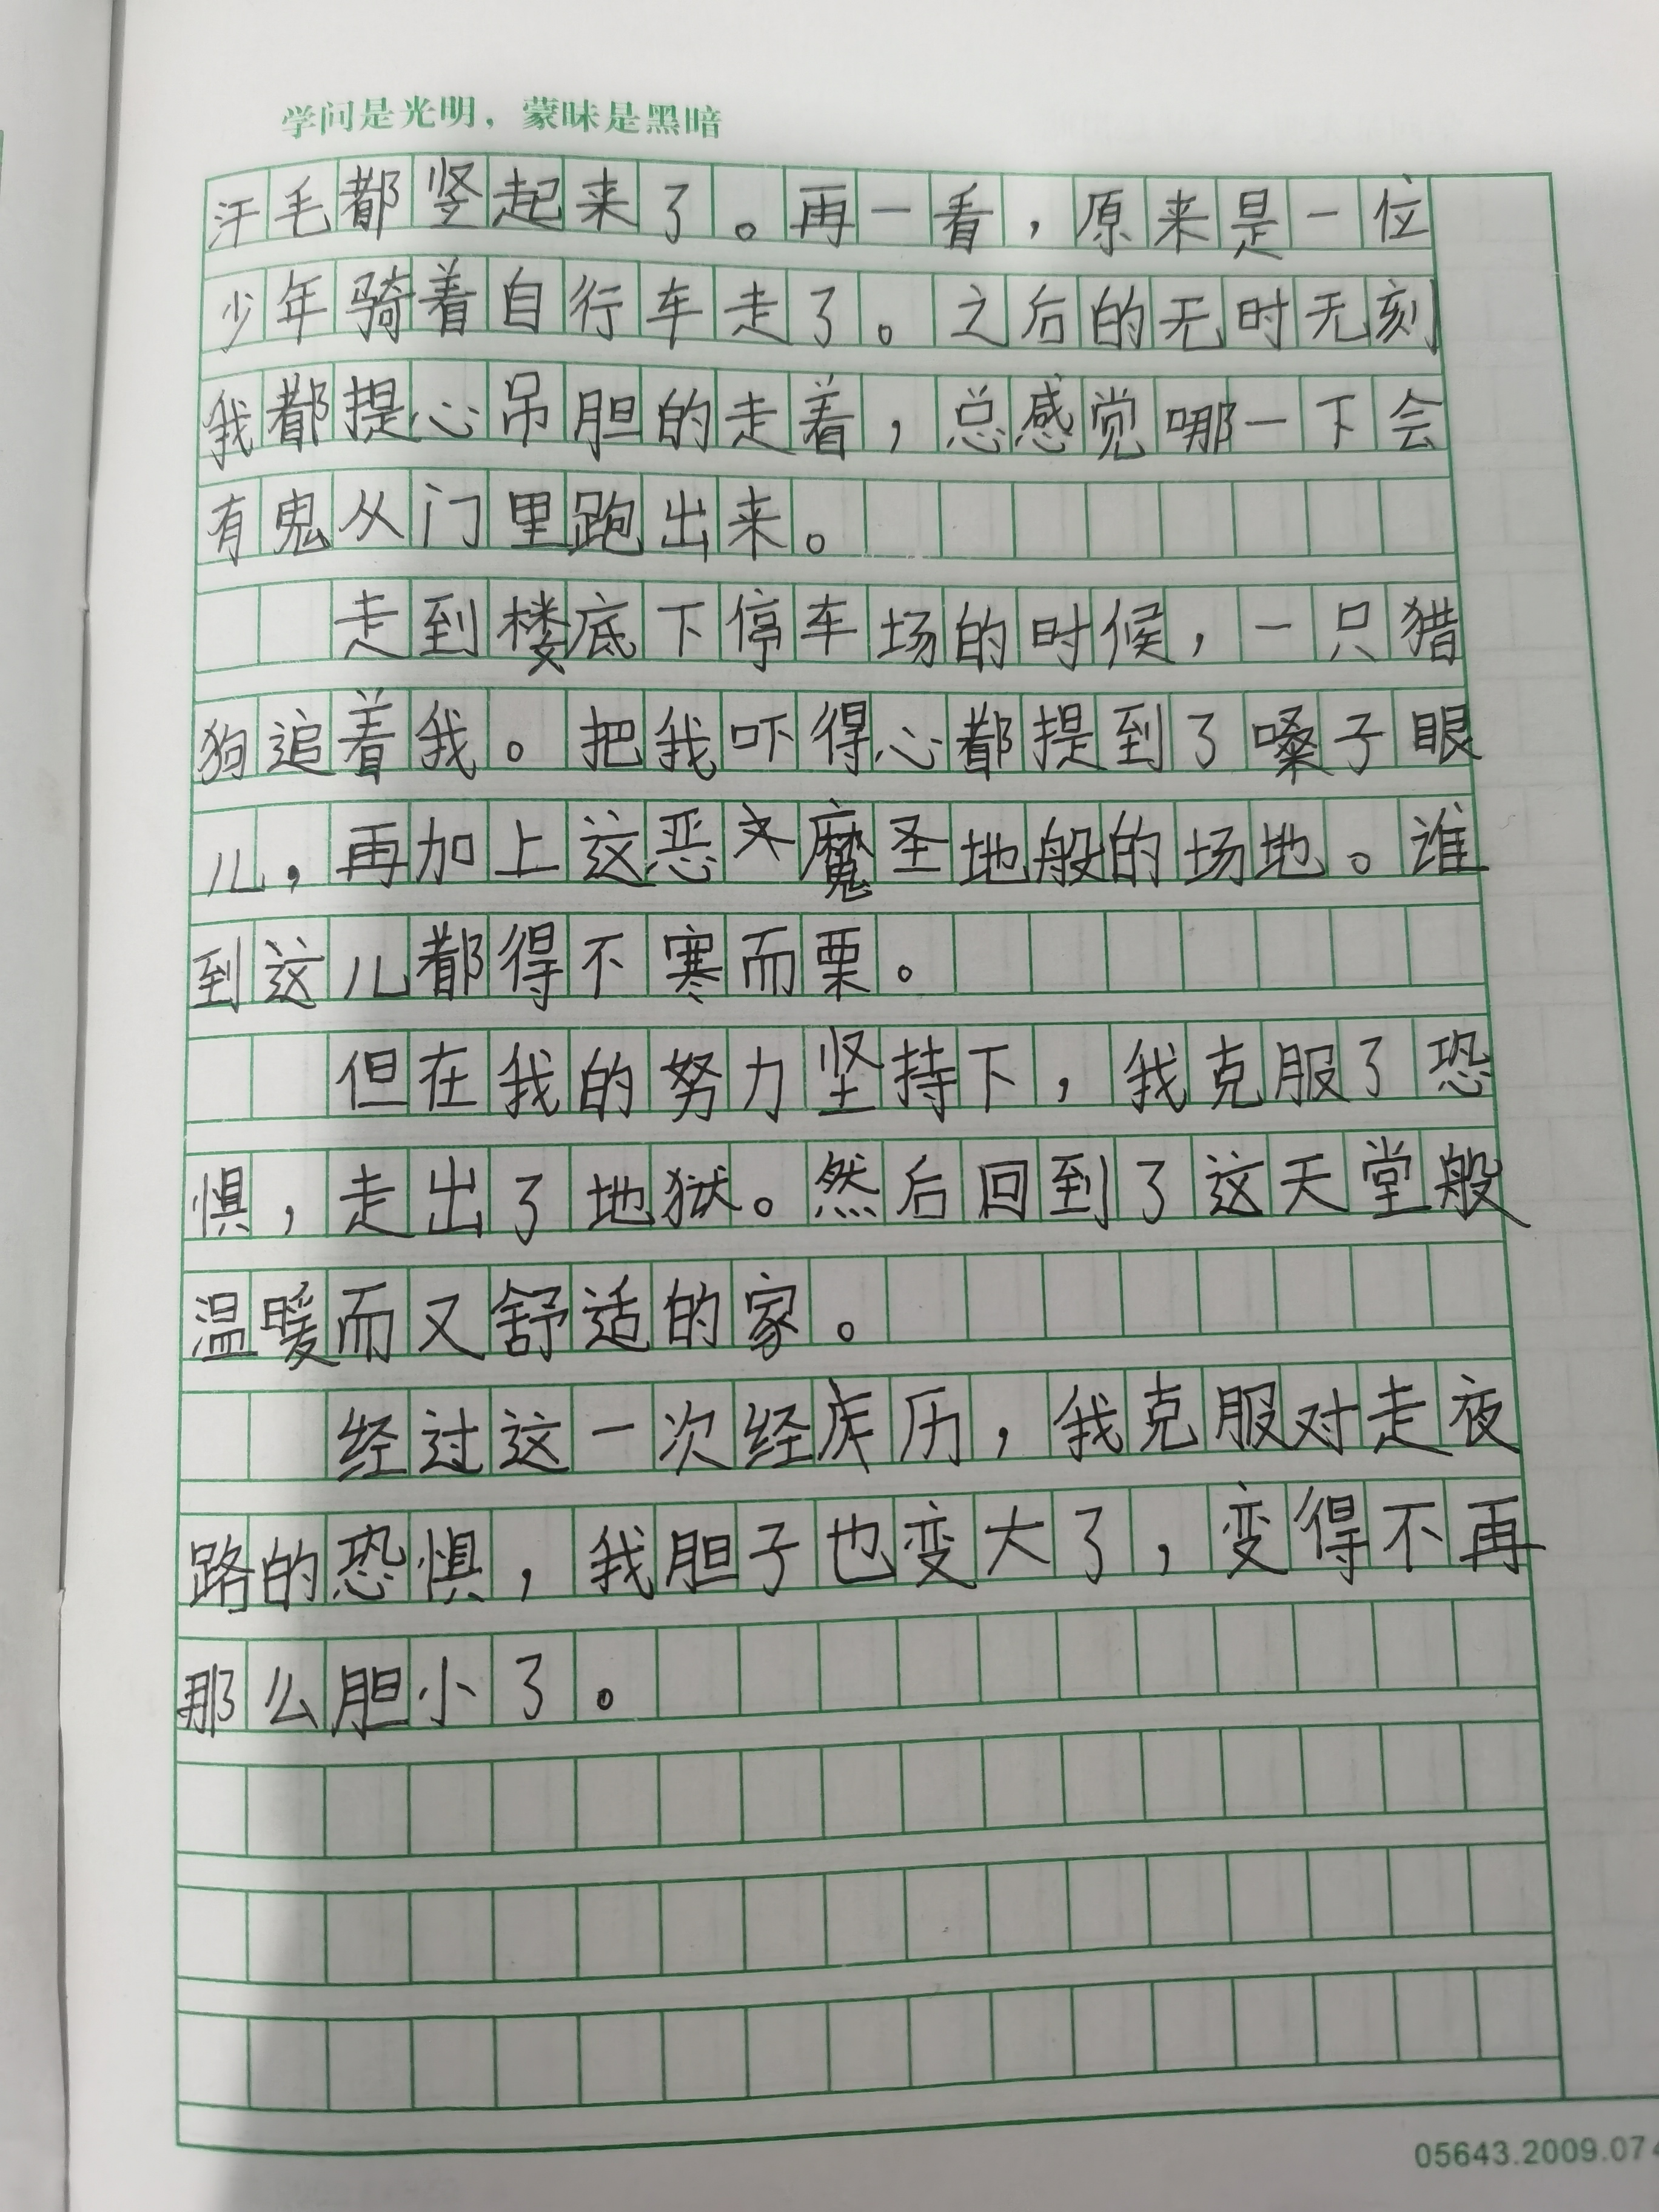 学问是光明，蒙昧是黑暗
汗毛都竖起来了。再一看，原来是一位
少年骑着自行车走了。之后的无时无刻
我都提心吊胆的走着，总感觉哪一下会
有鬼从门里跑出来。
走到楼底下停车场的时候，一只猎
狗追着我。把我吓得心都提到了嗓子眼
儿，再加上这恶魔圣地般的场地。谁
到这儿都得不寒而栗。
但在我的努力坚持下，我克服了恐
惧，走出了地狱。然后回到了这天堂般
温暖而又舒适的家。
经过这一次经历，我克服对走夜
路的恐惧，我胆子也变大了，变得不再
那么胆小了。
05643.2009.074